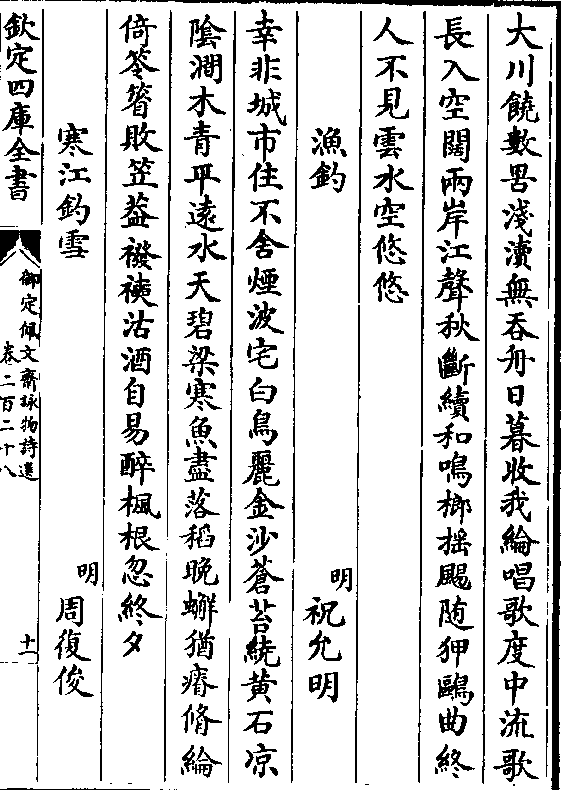 大川饒數罟淺瀆無吞舟日暮收我綸唱歌度中流歌
長入空闊兩岸江聲秋斷續和鳴榔揺颺随狎鷗曲終
人不見雲水空悠悠
漁釣
明
祝允明
幸非城市住不舍煙波宅白鳥麗金沙蒼苔繞黄石凉
陰澗木青平遠水天碧梁寒魚盡落稻晚蠏猶瘠脩綸
倚笭箵敗笠葢襏襫沽酒自易醉楓根忽終夕
寒江釣雪
明
周復俊
欽定四庫全書
御定佩文齋詠物詩選
卷二百二十八
十一